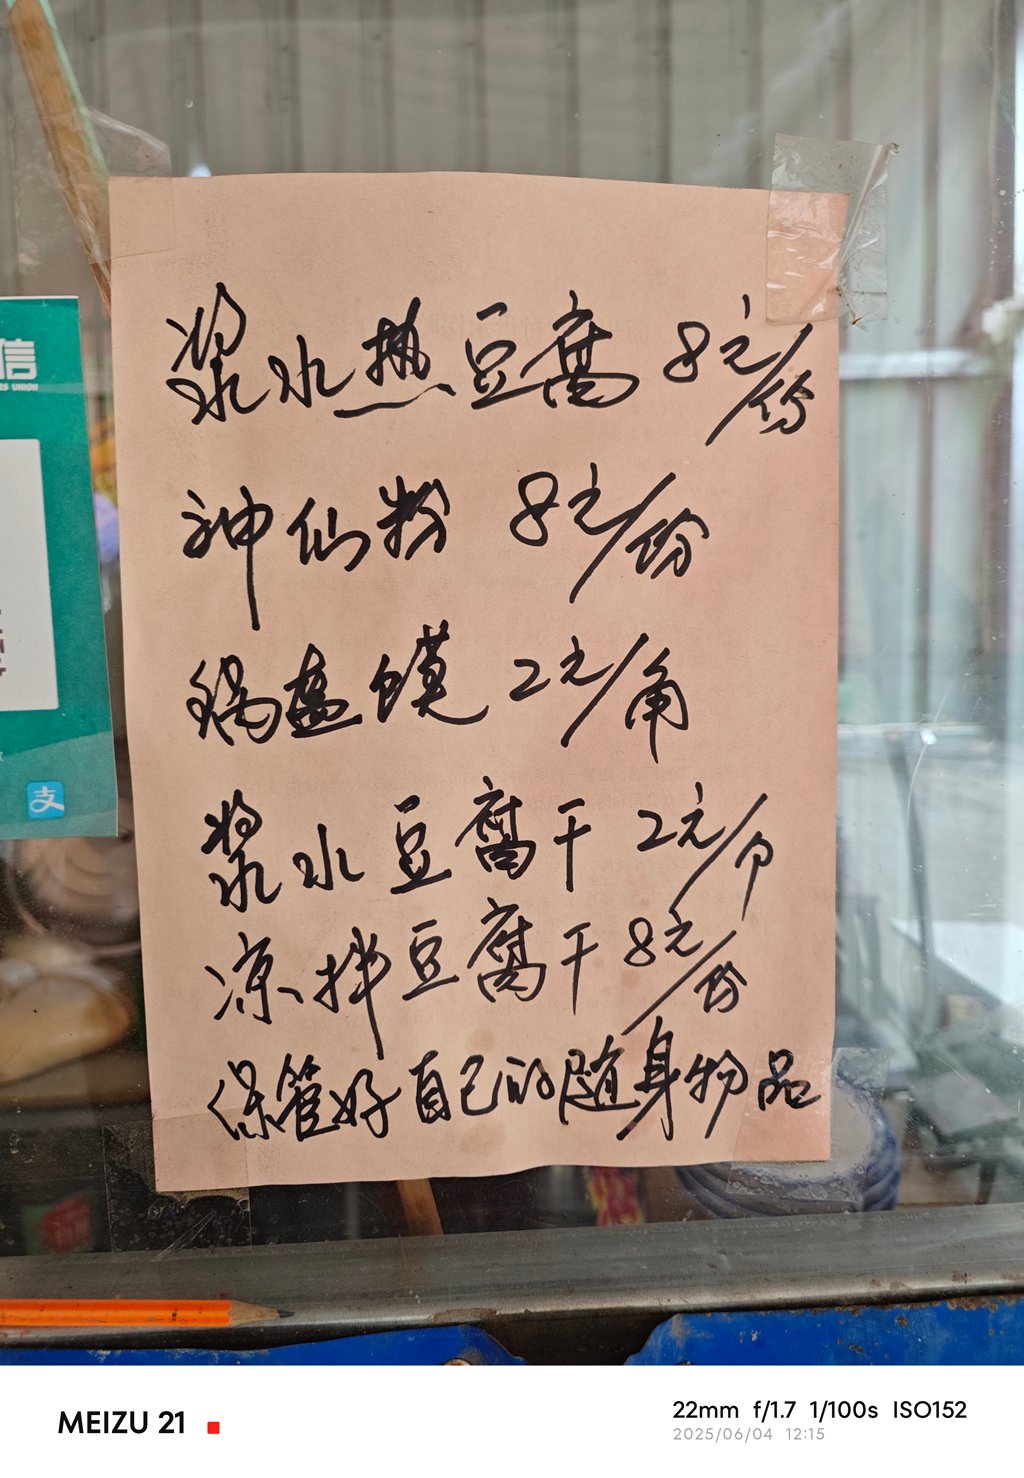 浆水热豆腐 8元/份
神仙粉 8元/份
锅盔馍 2元/角
浆水豆腐干 2元/个
凉拌豆腐干 8元/份
保管好自己的随身物品
信
ES UNION
支
MEIZU 21
22mm f/1.7 1/100s ISO152
2025/06/04 12:15